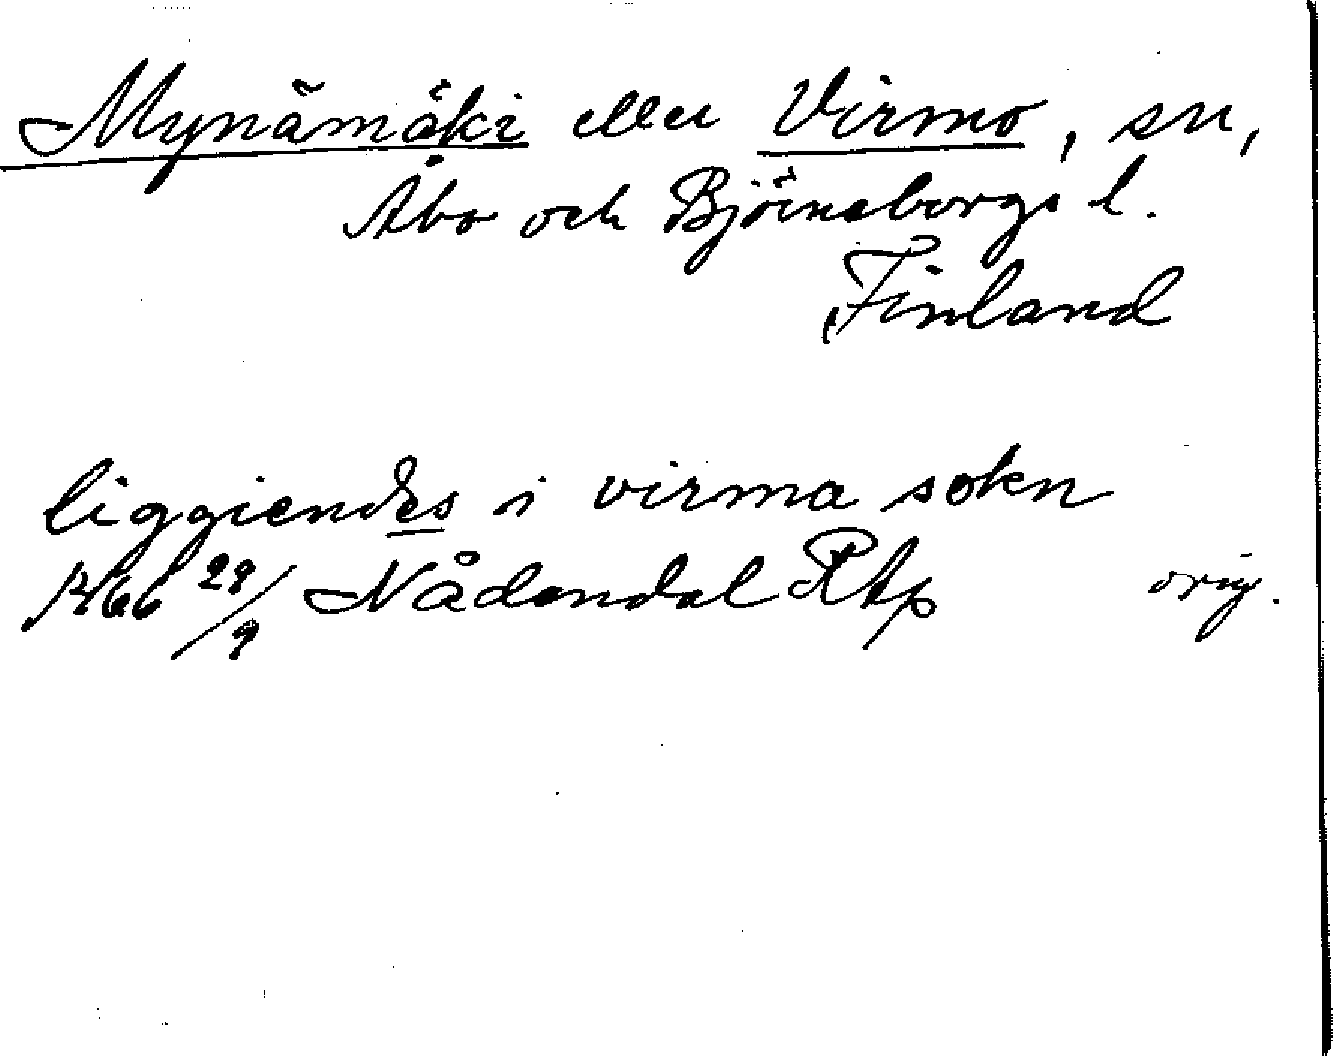 Mynämäki eller Virmo, sn,
Åbo och Björneborgs l.
Finland
liggiendes i virma sokn
1466 29/9 Nådendal RAp orig.